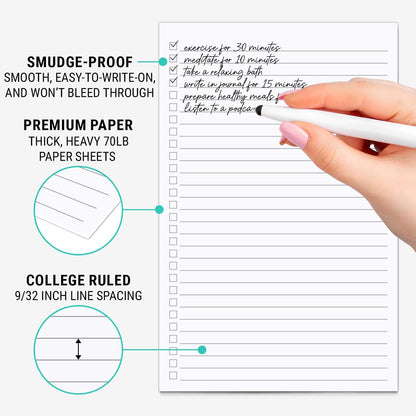 SMUDGE-PROOF
SMOOTH, EASY-TO-WRITE-ON,
AND WON'T BLEED THROUGH
PREMIUM PAPER
THICK, HEAVY 70LB
PAPER SHEETS
COLLEGE RULED
9/32 INCH LINE SPACING
exercise for 30 minutes
meditate for 10 minutes
take a relaxing bath
write in journal for 15 minutes
prepare healthy meals f
listen to a podca